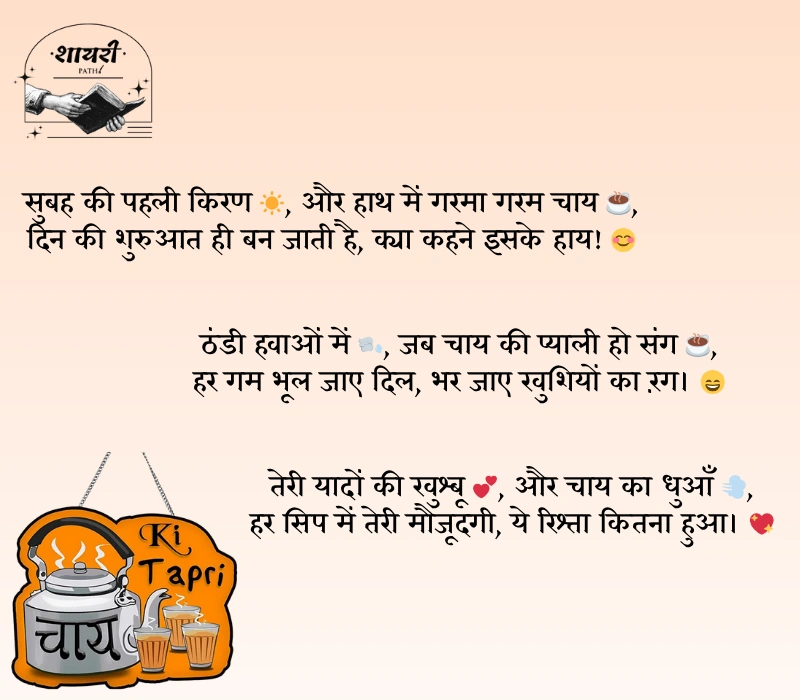 ·शायरी·
PATH
सुबह की पहली किरण ☀️, और हाथ में गरमा गरम चाय ☕,
दिन की शुरुआत ही बन जाती है, क्या कहने इसके हाय! 😊
ठंडी हवाओं में 🌬️, जब चाय की प्याली हो संग ☕,
हर गम भूल जाए दिल, भर जाए खुशियों का रंग। 😄
तेरी यादों की खुश्बू 💕, और चाय का धुआँ 💨,
हर सिप में तेरी मौजूदगी, ये रिश्ता कितना हुआ। 💖
Ki
Tapri
चाय